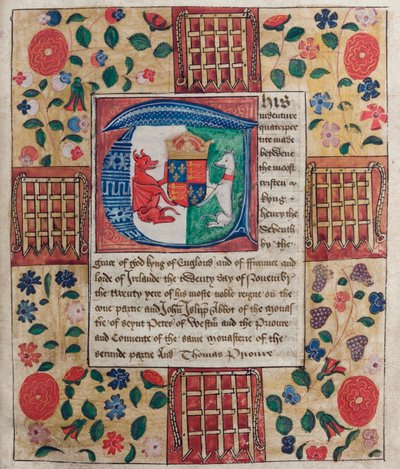 This
indenture
quatriper
tite made
betwene
the moost
cristen
kyng
henry the
Seventh
by the
grace of god kyng of Englond and of ffraunce and
lorde of Irlande the twenty day of Novembr
the twenty yere of his moste noble reigne on the
one partie and John Islipp Abbot of the monas
terie of Seynt Peter of Westm and the Prioure
and Convente of the same monasterie of the
secunde partie And Thomas Prioure